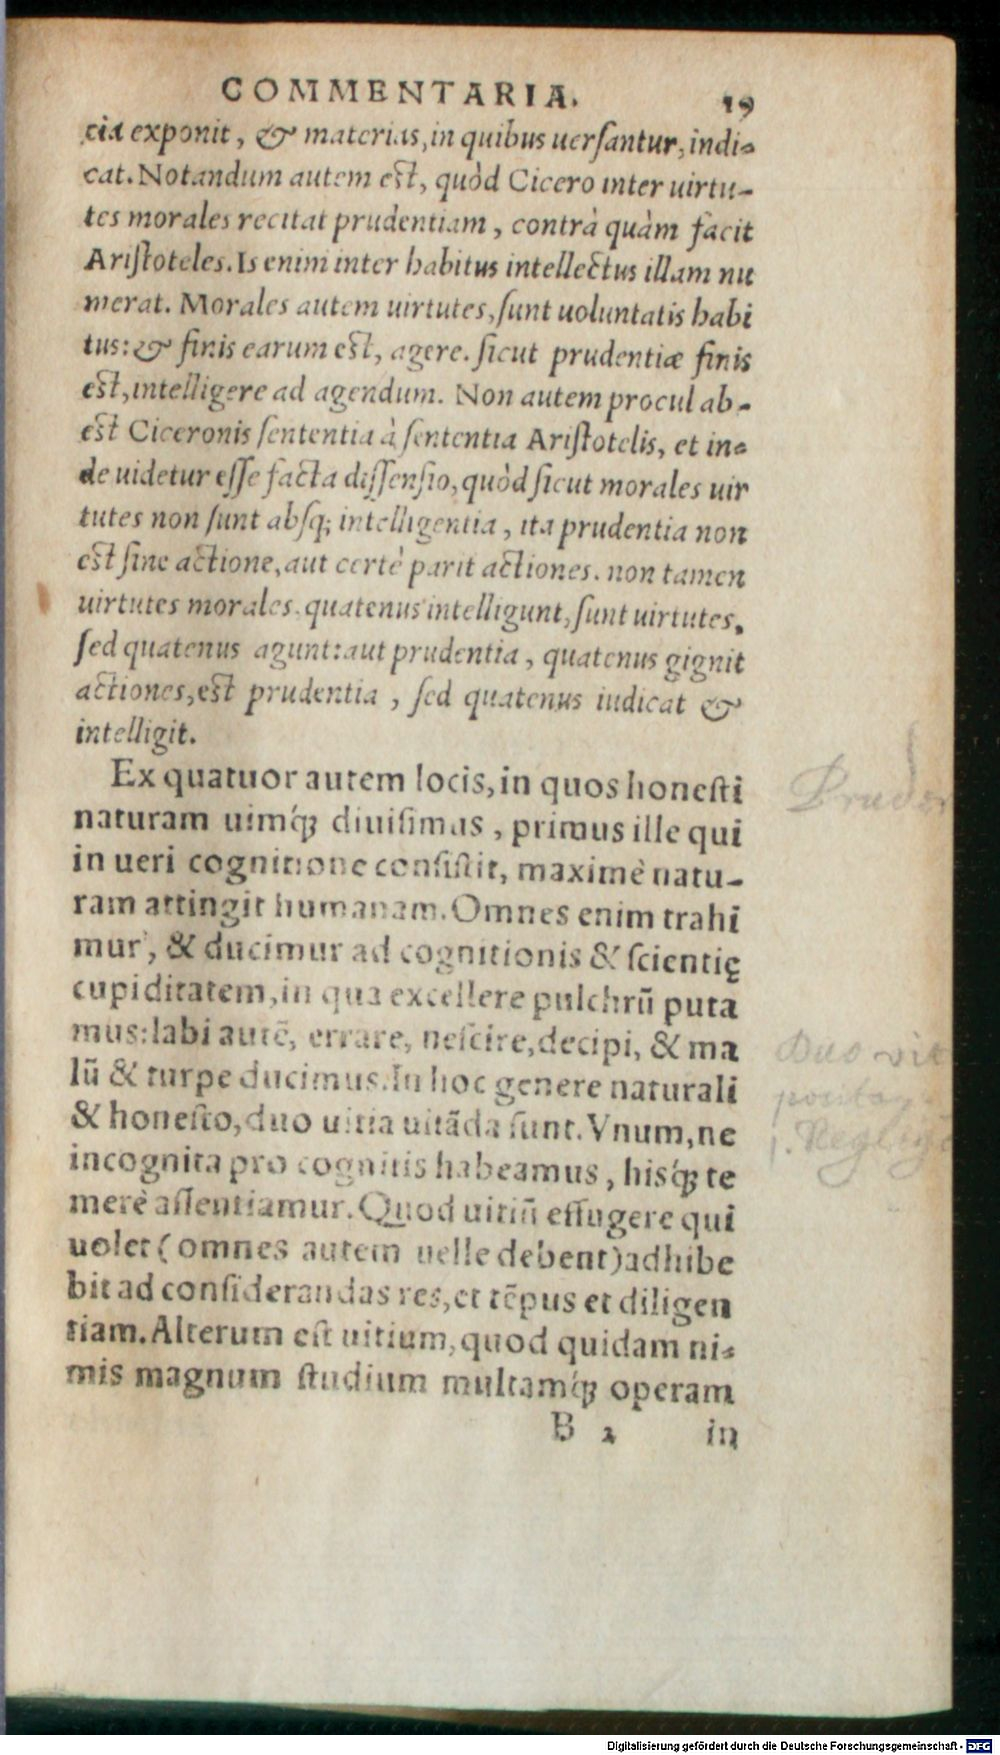 COMMENTARIA. 19
cia exponit, & materias, in quibus uersantur, indi-
cat. Notandum autem est, quòd Cicero inter uirtu-
tes morales recitat prudentiam, contrà quàm facit
Aristoteles. Is enim inter habitus intellectus illam nu
merat. Morales autem uirtutes, sunt uoluntatis habi
tus: & finis earum est, agere. sicut prudentiæ finis
est, intelligere ad agendum. Non autem procul ab-
est Ciceronis sententia à sententia Aristotelis, et in-
de uidetur esse facta dissensio, quòd sicut morales uir
tutes non sunt absq; intelligentia, ita prudentia non
est sine actione, aut certè parit actiones. non tamen
uirtutes morales, quatenus intelligunt, sunt uirtutes,
sed quatenus agunt: aut prudentia, quatenus gignit
actiones, est prudentia, sed quatenus iudicat &
intelligit.
Ex quatuor autem locis, in quos honesti
naturam uimq́; diuisimus, primus ille qui
in ueri cognitione consistit, maximè natu-
ram attingit humanam. Omnes enim trahi
mur, & ducimur ad cognitionis & scientię
cupiditatem, in qua excellere pulchrũ puta
mus: labi autẽ, errare, nescire, decipi, & ma
lũ & turpe ducimus. In hoc genere naturali
& honesto, duo uitia uitãda sunt. Vnum, ne
incognita pro cognitis habeamus, hisq́; te
merè assentiamur. Quod uitiũ effugere qui
uolet (omnes autem uelle debent) adhibe
bit ad considerandas res, et tẽpus et diligen
tiam. Alterum est uitium, quod quidam ni-
mis magnum studium multamq́; operam
B 2 in
Pruden
Duo vit
Digitalisierung gefördert durch die Deutsche Forschungsgemeinschaft - DFG